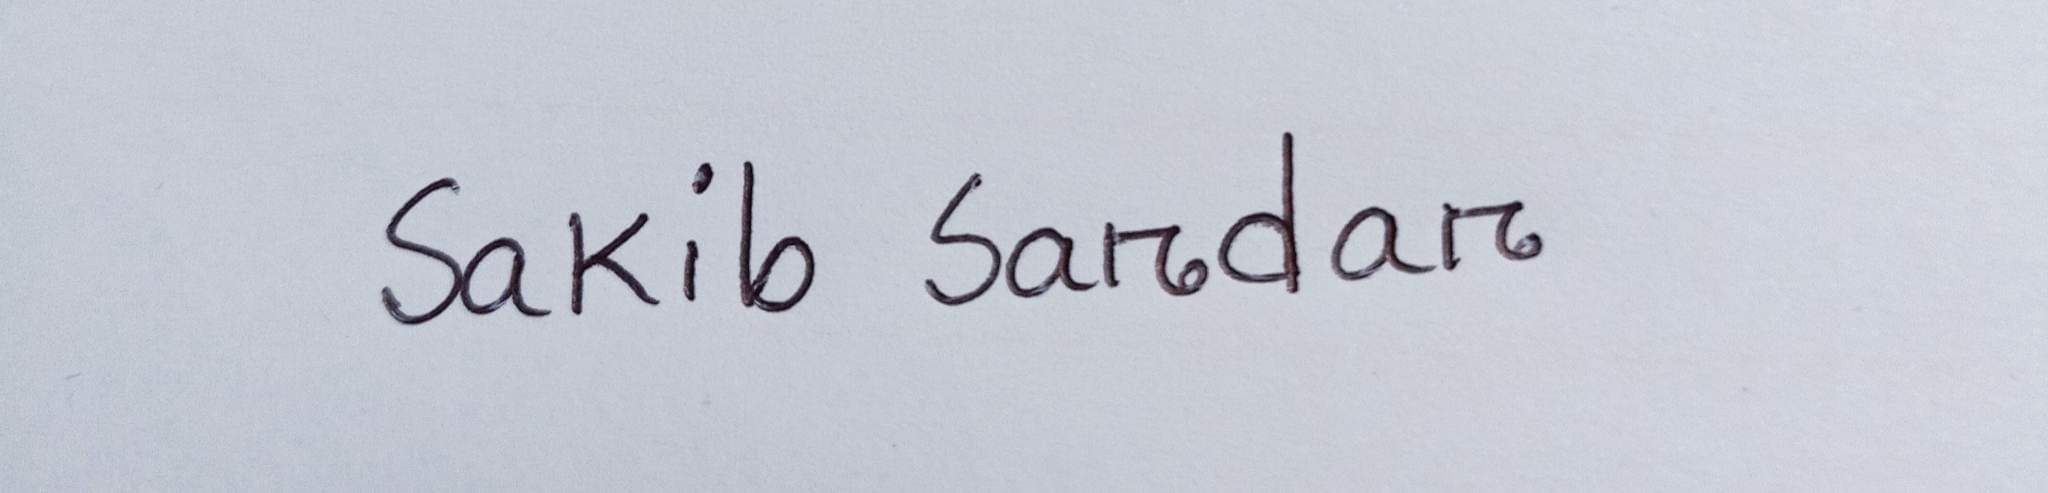 Sakib Sardar